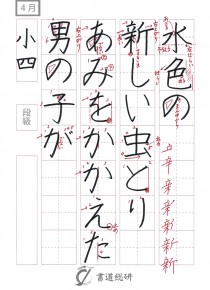 4月
水色の
新しい虫とり
あみをかかえた
男の子が
小四
段級
書道総研